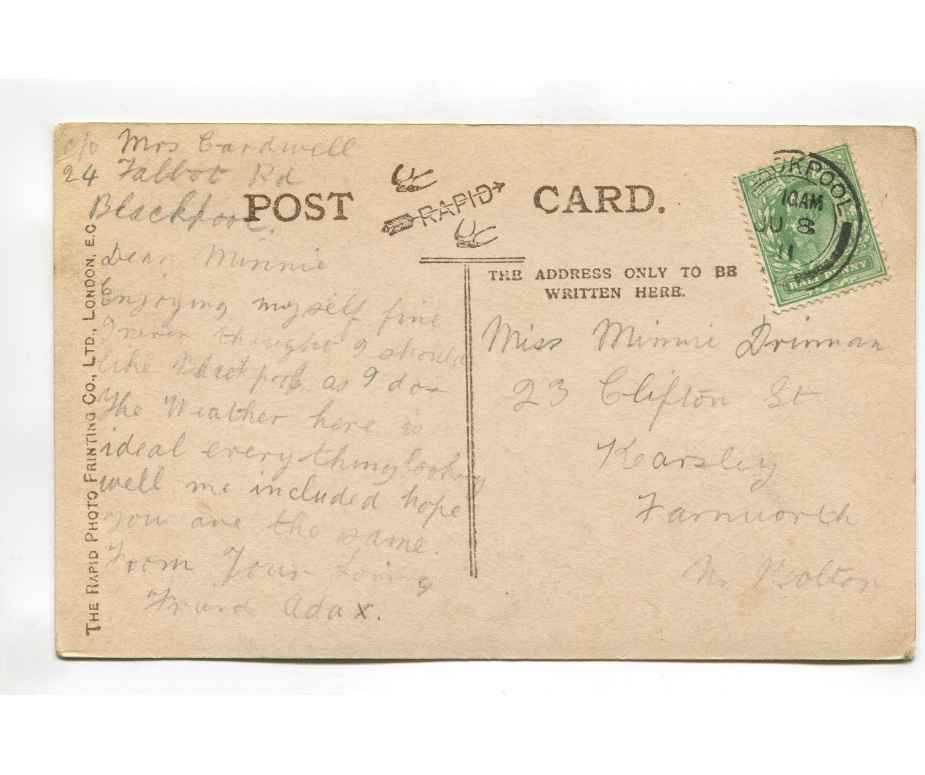 c/o Mrs Cardwell
24 Talbot Rd
Blackpool.
POST CARD.
RAPID
THE ADDRESS ONLY TO BE
WRITTEN HERE.
BLACKPOOL
10 AM
JU 8
11
HALFPENNY
Dear Minnie
Enjoying myself fine
I never thought I should
like Blackpool as I do
The Weather here is
ideal everything looking
well me included hope
you are the same.
From Your Loving
Friend Ada x.
Miss Minnie Drinnan
23 Clifton St
Kearsley
Farnworth
Nr Bolton
THE RAPID PHOTO PRINTING CO., LTD., LONDON, E.C.